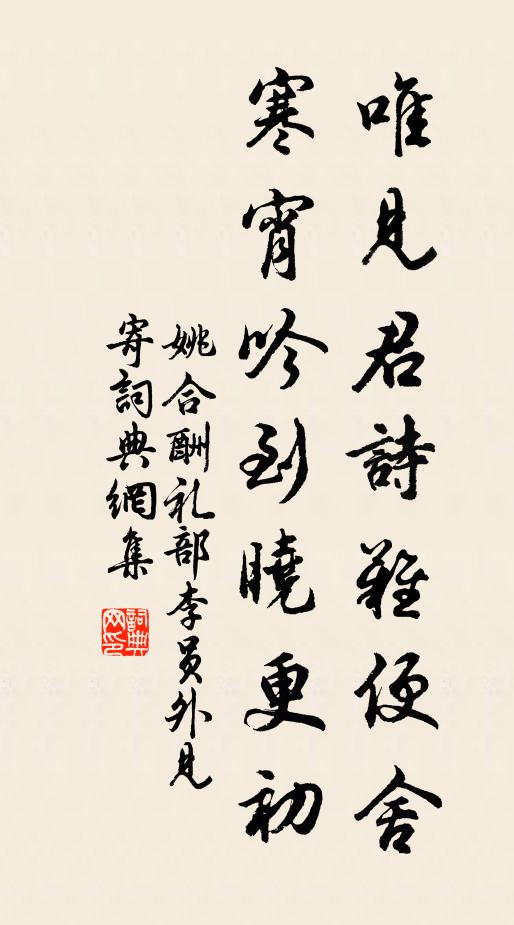 唯見君詩難便舍
寒宵吟到曉更初
姚合酬礼部李員外見
寄詞典網集
詞典
网印